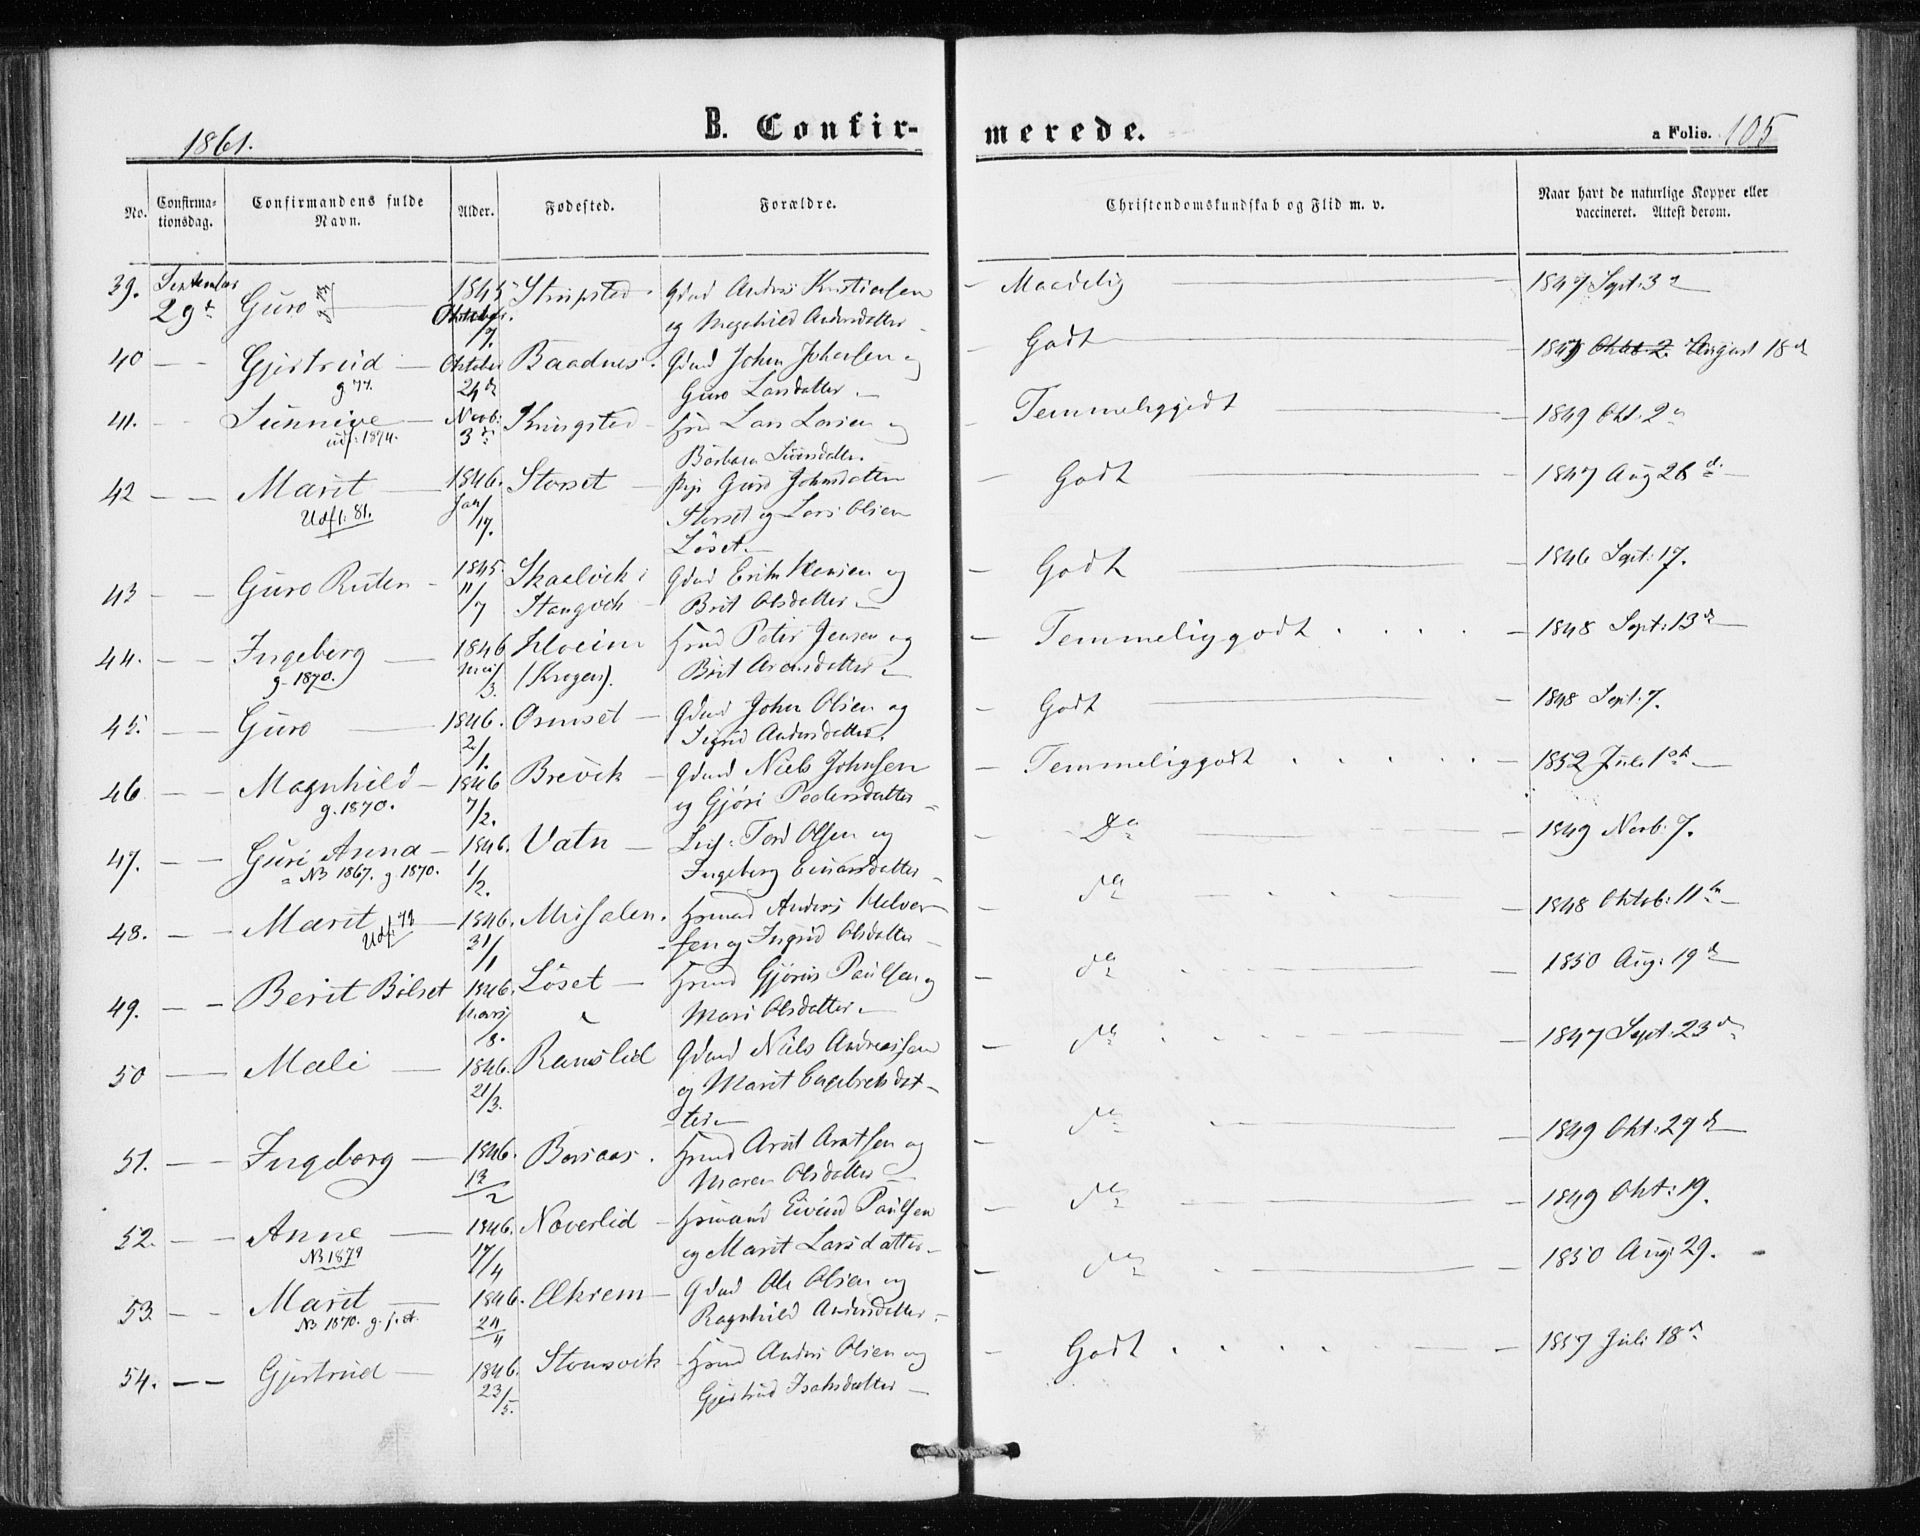 1861.
B. Confir-
merede.
a Folio. 105
No.
Confirma-
tionsdag.
Confirmandens fulde
Navn.
Alder.
Fødested.
Forældre.
Christendomskundskab og Flid m. v.
Naar havt de naturlige Kopper eller
vaccineret. Attest derom.
39. September 29de Guro 1845 Oktober 7. Gdmd Anders
og Andersdatter
Maadelig 1847 Sept: 3d
40 — — Gjertrud Oktober 24de Baadnes. Gdmd John Johnsen og
g 77. Guro Larsdatter
Godt August 18d
41. Sunnive Novb: 3de Kringsted Hmd Lars Larsen og
udf: 1874. Barbara Siversdatter.
Temmeliggodt 1849 Okt: 2d
42 — — Marit 1846. Jan/17. Storset Pige Guro Johnsdatter
Udfl: 81. Storset og Lars Olsen
Løset
Godt 1847 Aug 26d.
43 — — Guro Ruten 1845 11/7 Skaalvik i Gdmd Erik og
Stangvik Brit Olsdatter
Godt 1846 Sept: 17.
44. — — Ingeborg 1846 Mai/3. Hmd Peter Jensen og
g. 1870. Brit Arensdatter
Temmeliggodt 1848 Sept: 13d
45. — — Guro 1846. 2/1. Osmset Gdmd John Olsen og
Sigrid Andersdatter.
Godt 1848 Sept: 7.
46 — — Magnhild 1846 7/2. Brevik Gdmd Niels Johnsen
g. 1870. og Gjøri Pedersdatter
Temmeliggodt 1852 Juli
47. — — Guri Anna 1846. 1/2. Vatn Tord Olsen og
NB 1867. g 1870. Ingeborg Einarsdatter
Do 1849 Novb: 7.
48. — — Marit 1846. 31/1 Misalen. Hsmand Anders Halvor-
Udf: -sen og Ingrid Olsdatter
do 1848 Oktob: 11te
49. — — Berit Bølset 1846. Mars/8. Løset Hmd Paulsen og
Mari Olsdatter
do 1850 Aug: 19d
50 — — Mali 1846. 21/3. Ranslid Gdmd Niels Andreassen
og Marit Engebretsdat-
ter
do 1847 Sept: 23d
51. — — Ingeborg 1846. 13/2 Hsmd Arnt Arntsen og
Maren Olsdatter
do 1849 Okt: 29d
52. — — Anne 1846. 17/4 Naverlid Hsmand Eivind Paulsen
NB 1879 og Marit Larsdatter
do 1849 Okt: 19.
53. — — Marit 1846. 24/4 Ækrem Gdmd Ole Olsen og
NB 1870. Ragnhild Andersdatter
do 1850 Aug: 29.
54. — — Gjertrud 1846. 23/5. Stensvik Hsmd Anders Olsen og
Gjertrud Isaksdatter
Godt 1857 Juli 18d